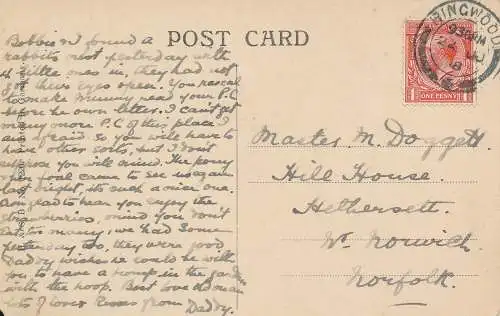 POST CARD
RINGWOOD
9 30 AM
ONE PENNY
Bobbie & I found a
rabbits nest yesterday with
4 little ones in, they had not
got their eyes open. You rascal
to make Mummy read your P.C
before her own letter. I can't get
many more P.C of this place I
am afraid so you will have to
have other sorts, but I don't
suppose you will mind. The pony
& her foal came to see us again
last night, its such a nice one.
Am glad to hear you enjoy the
strawberries, mind you don't
eat too many, we had some
yesterday too, they were good
Daddy wishes he could be with
you to have a romp in the garden
with the hoop. Best love & an
lots of love Kisses from Daddy.
Master M. Doggett
Hill House.
Hethersett.
Nr. Norwich.
Norfolk.